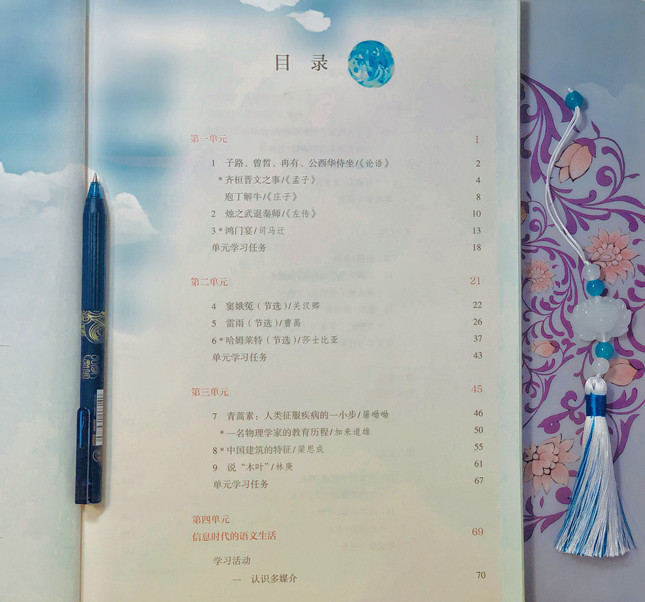 目 录
第一单元 1
1 子路、曾皙、冉有、公西华侍坐/《论语》 2
*齐桓晋文之事/《孟子》 4
庖丁解牛/《庄子》 8
2 烛之武退秦师/《左传》 10
3*鸿门宴/司马迁 13
单元学习任务 18
第二单元 21
4 窦娥冤(节选)/关汉卿 22
5 雷雨(节选)/曹禺 26
6*哈姆莱特(节选)/莎士比亚 37
单元学习任务 43
第三单元 45
7 青蒿素:人类征服疾病的一小步/屠呦呦 46
*一名物理学家的教育历程/加来道雄 50
8*中国建筑的特征/梁思成 55
9 说“木叶”/林庚 61
单元学习任务 67
第四单元
信息时代的语文生活 69
学习活动
一 认识多媒介 70